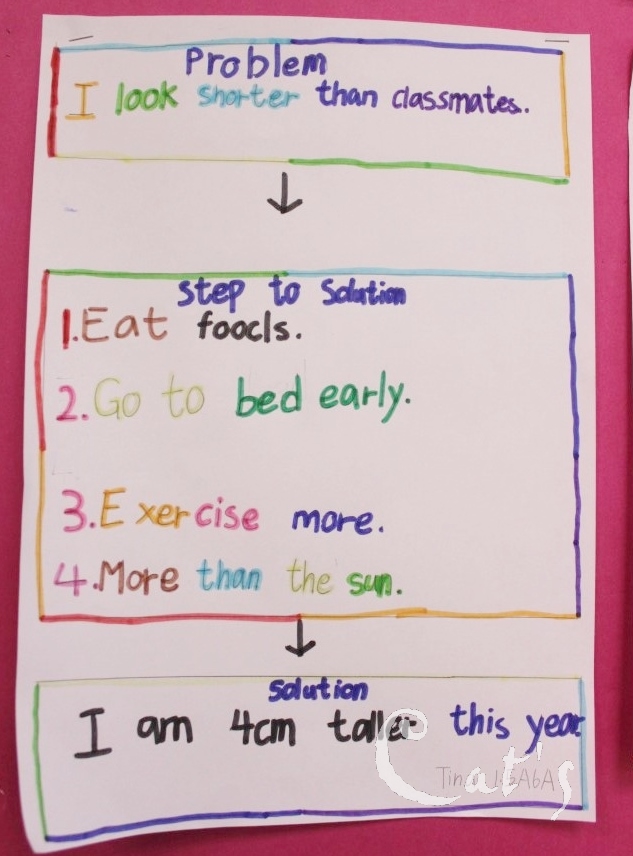 Problem
I look shorter than classmates.
Step to Solution
1.Eat foods.
2.Go to bed early.
3.Exercise more.
4.More than the sun.
Solution
I am 4cm taller this year
Cat's